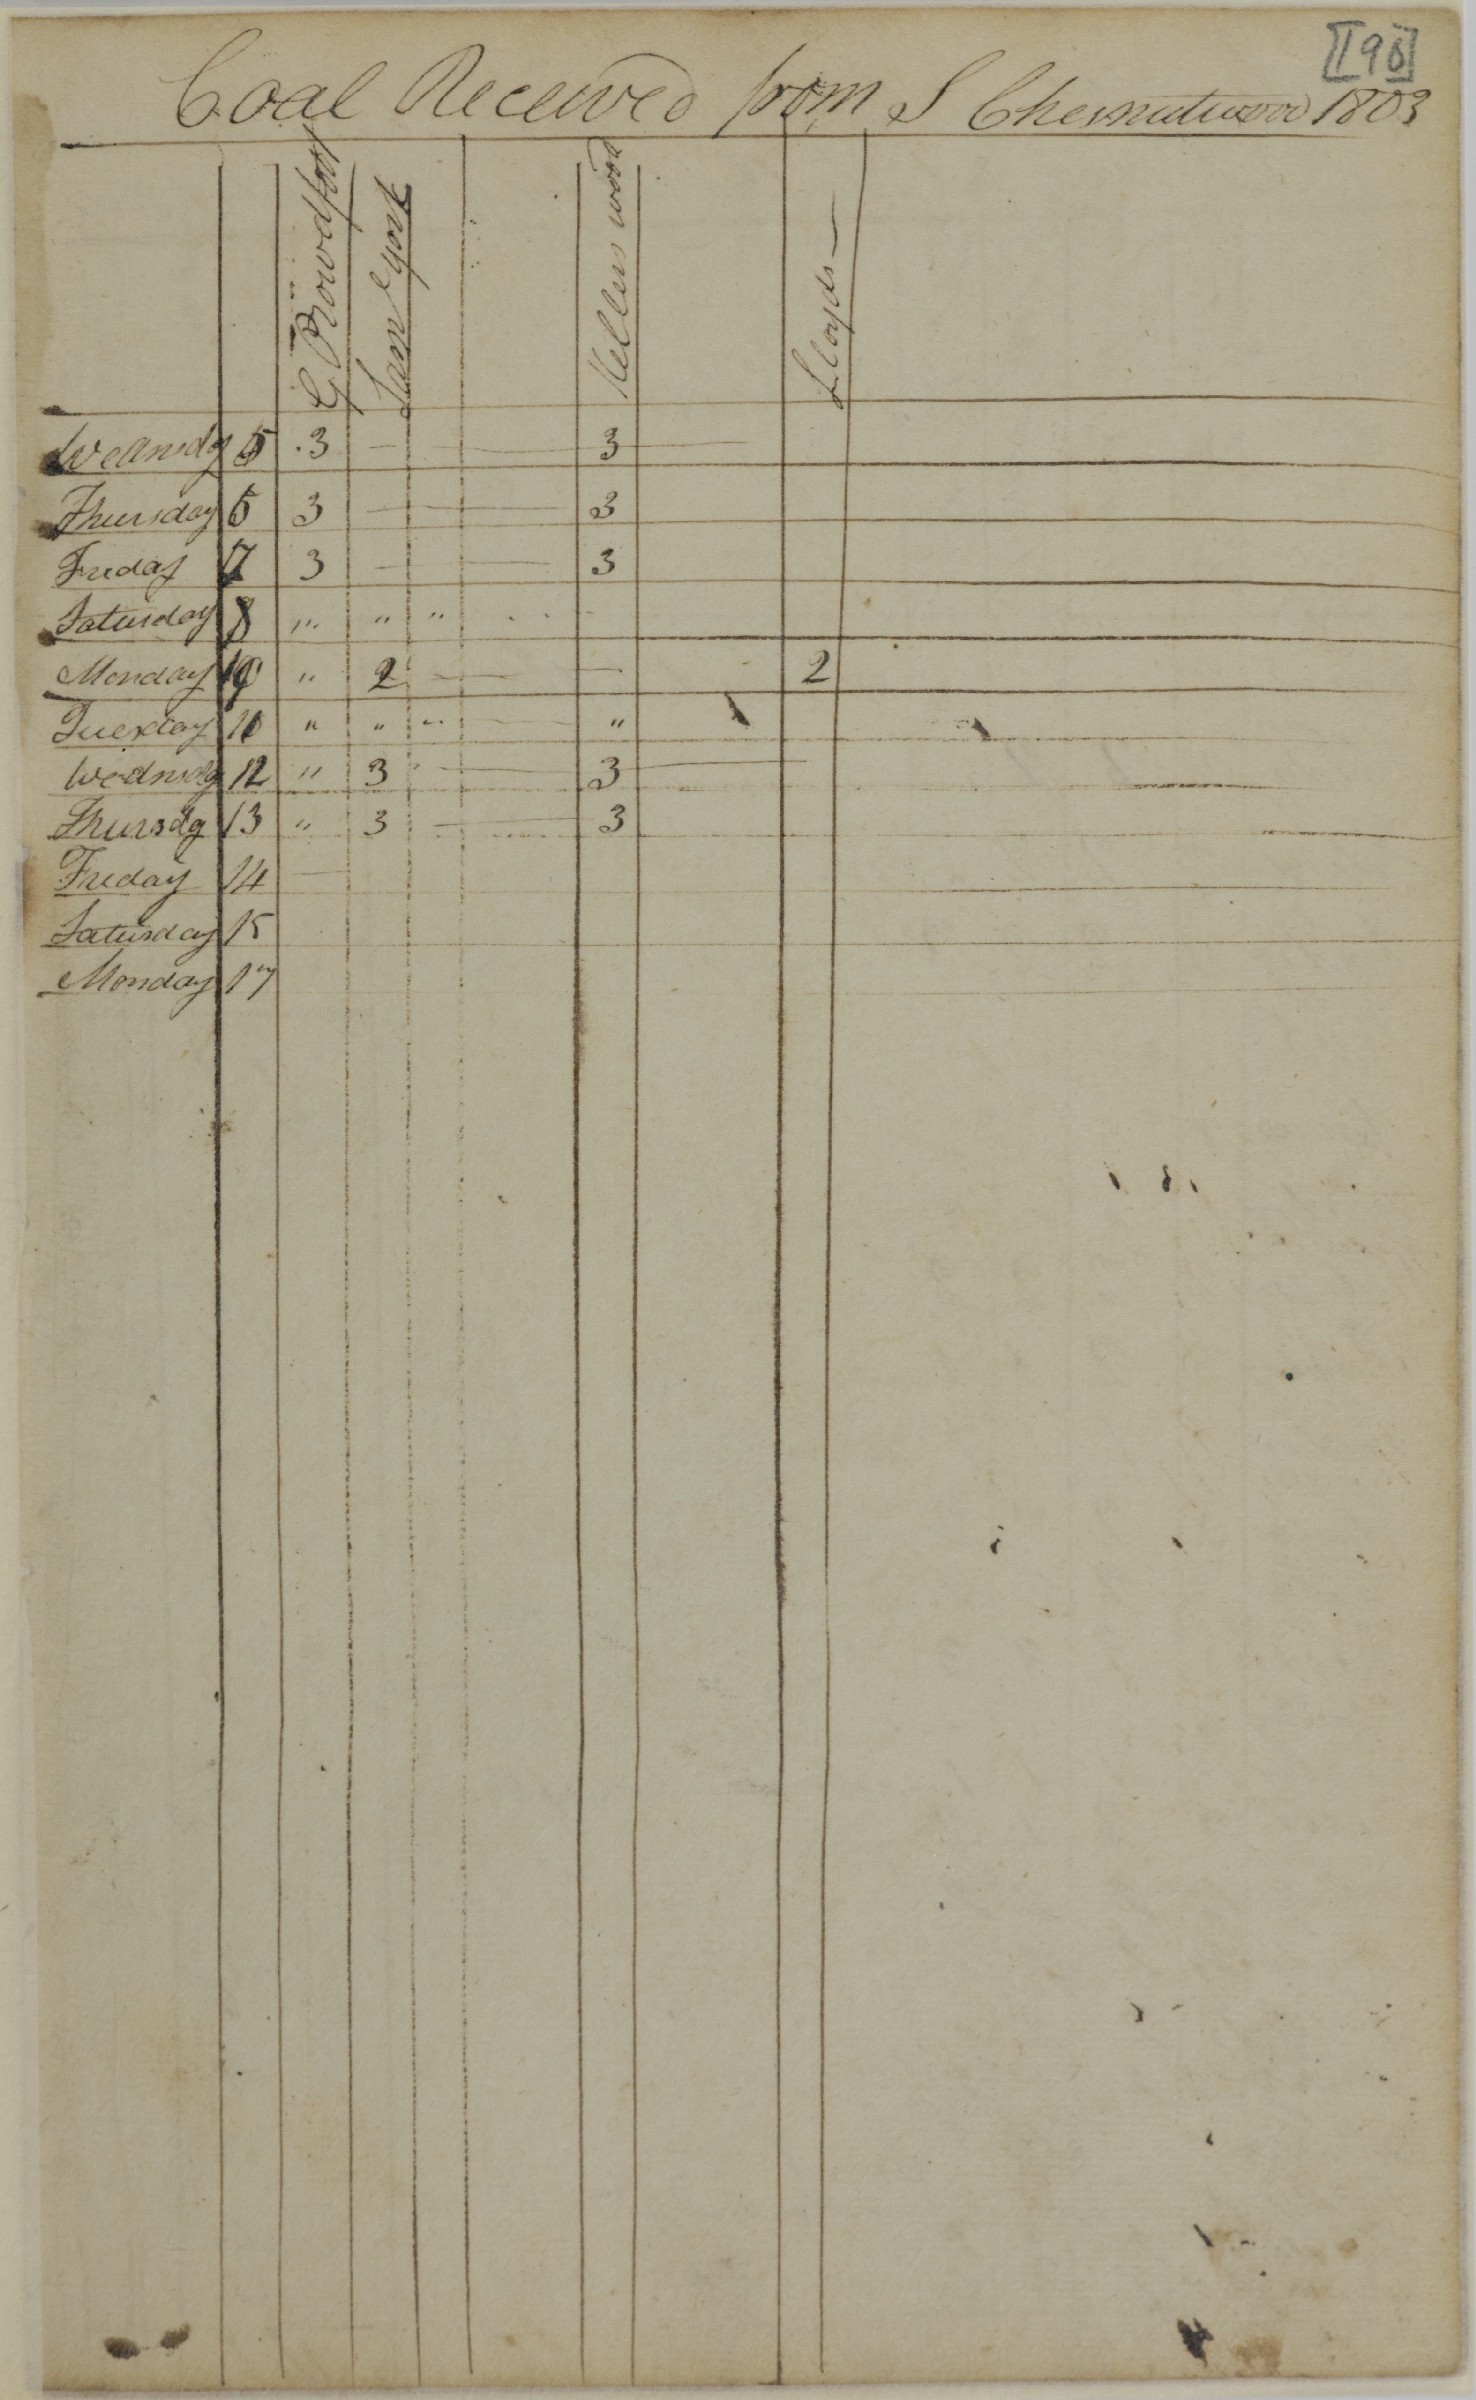 [198]
Coal Received from S Chesnutwood 1803
G Prowdfoot
Sam York
Kellers wood
Lloyds —
Wednsdy 5 3 — — 3 —
Thursday 6 3 — — 3
Friday 7 3 — — 3
Saturday 8 " " "
Monday 10 " 2 — — 2
Tuesday 11 " " " — "
Wednsdy 12 " 3 — 3 —
Thursdy 13 " 3 — 3
Friday 14 —
Saturday 15
Monday 17